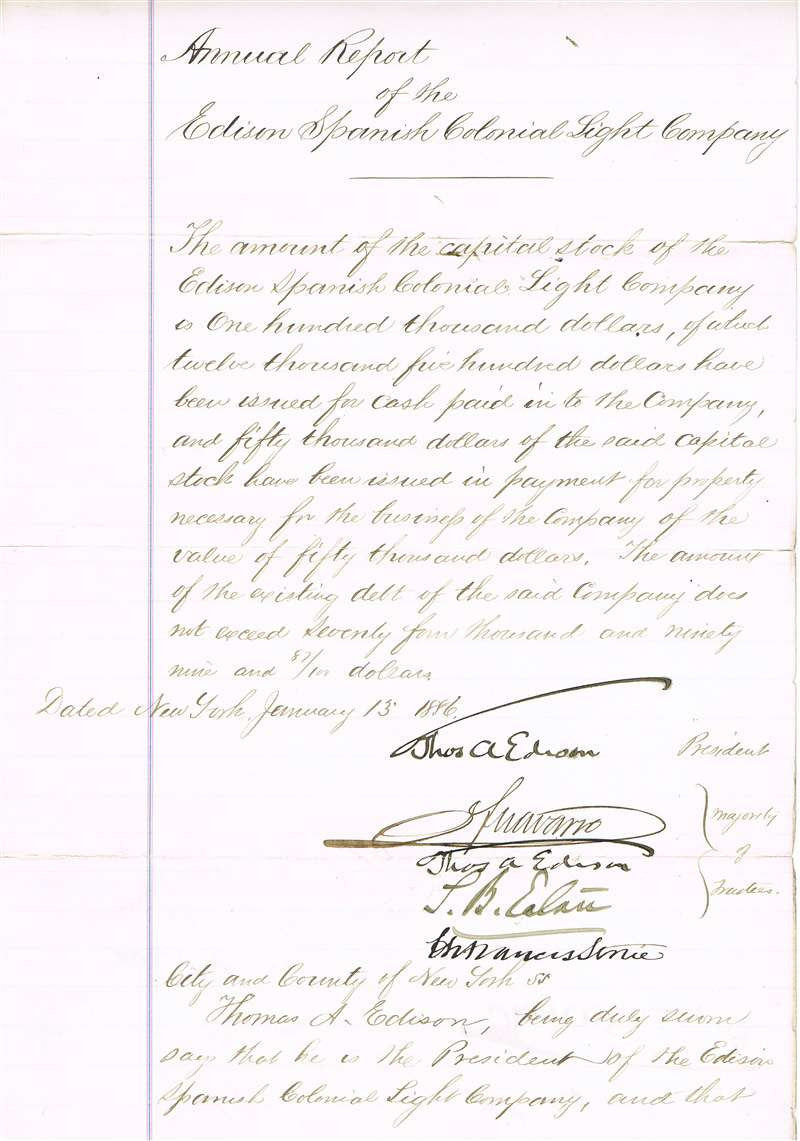 Annual Report
of the
Edison Spanish Colonial Light Company
The amount of the capital stock of the
Edison Spanish Colonial Light Company
is One hundred thousand dollars, of which
twelve thousand five hundred dollars have
been issued for cash paid in to the Company,
and fifty thousand dollars of the said capital
stock have been issued in payment for property
necessary for the business of the Company of the
value of fifty thousand dollars. The amount
of the existing debt of the said Company does
not exceed Seventy four thousand and ninety
nine and /100 dollars
Dated New York, January 13 1886.
Thos A Edison President
J F Navarro majority
Thos A Edison of
S. B. Eaton Trustees.
City and County of New York ss
Thomas A. Edison, being duly sworn
says that he is the President of the Edison
Spanish Colonial Light Company, and that